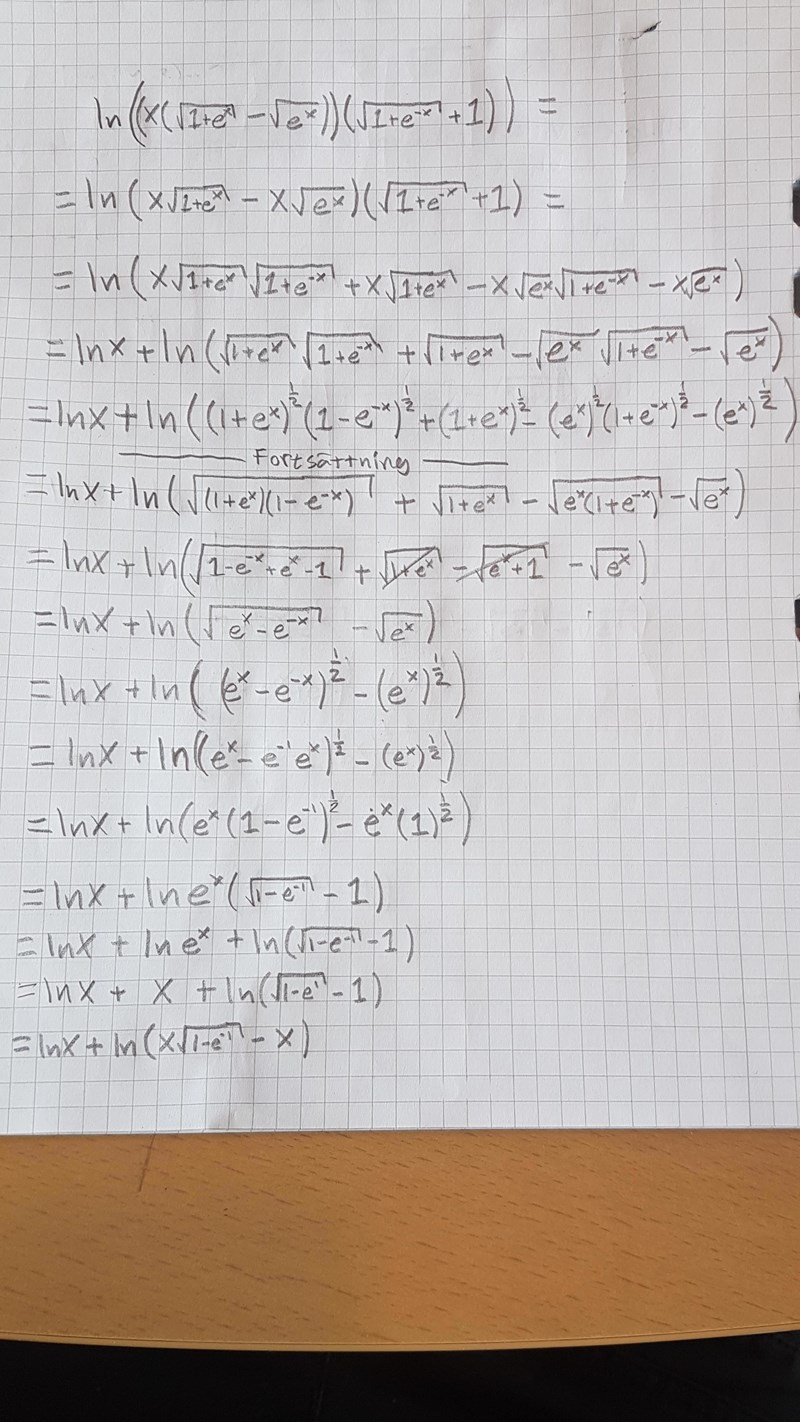 ln((x(√(1+eˣ) − √(eˣ)))(√(1+e⁻ˣ) + 1)) =
= ln(x√(1+eˣ) − x√(eˣ))(√(1+e⁻ˣ) + 1) =
= ln(x√(1+eˣ)√(1+e⁻ˣ) + x√(1+eˣ) − x√(eˣ)√(1+e⁻ˣ) − x√(eˣ))
= lnx + ln(√(1+eˣ)√(1+e⁻ˣ) + √(1+eˣ) − √(eˣ)√(1+e⁻ˣ) − √(eˣ))
= lnx + ln((1+eˣ)^½(1−e⁻ˣ)^½ + (1+eˣ)^½ − (eˣ)^½(1+e⁻ˣ)^½ − (eˣ)^½)
Fortsättning
= lnx + ln(√((1+eˣ)(1−e⁻ˣ)) + √(1+eˣ) − √(eˣ(1+e⁻ˣ)) − √(eˣ))
= lnx + ln(√(1−e⁻ˣ+eˣ−1) + √(1+eˣ) − √(eˣ+1) − √(eˣ))
= lnx + ln(√(eˣ−e⁻ˣ) − √(eˣ))
= lnx + ln((eˣ−e⁻ˣ)^½ − (eˣ)^½)
= lnx + ln((eˣ−e⁻¹eˣ)^½ − (eˣ)^½)
= lnx + ln(eˣ(1−e⁻¹)^½ − eˣ(1)^½)
= lnx + lneˣ(√(1−e⁻¹) − 1)
= lnx + lneˣ + ln(√(1−e⁻¹) − 1)
= lnx + x + ln(√(1−e⁻¹) − 1)
= lnx + ln(x√(1−e⁻¹) − x)